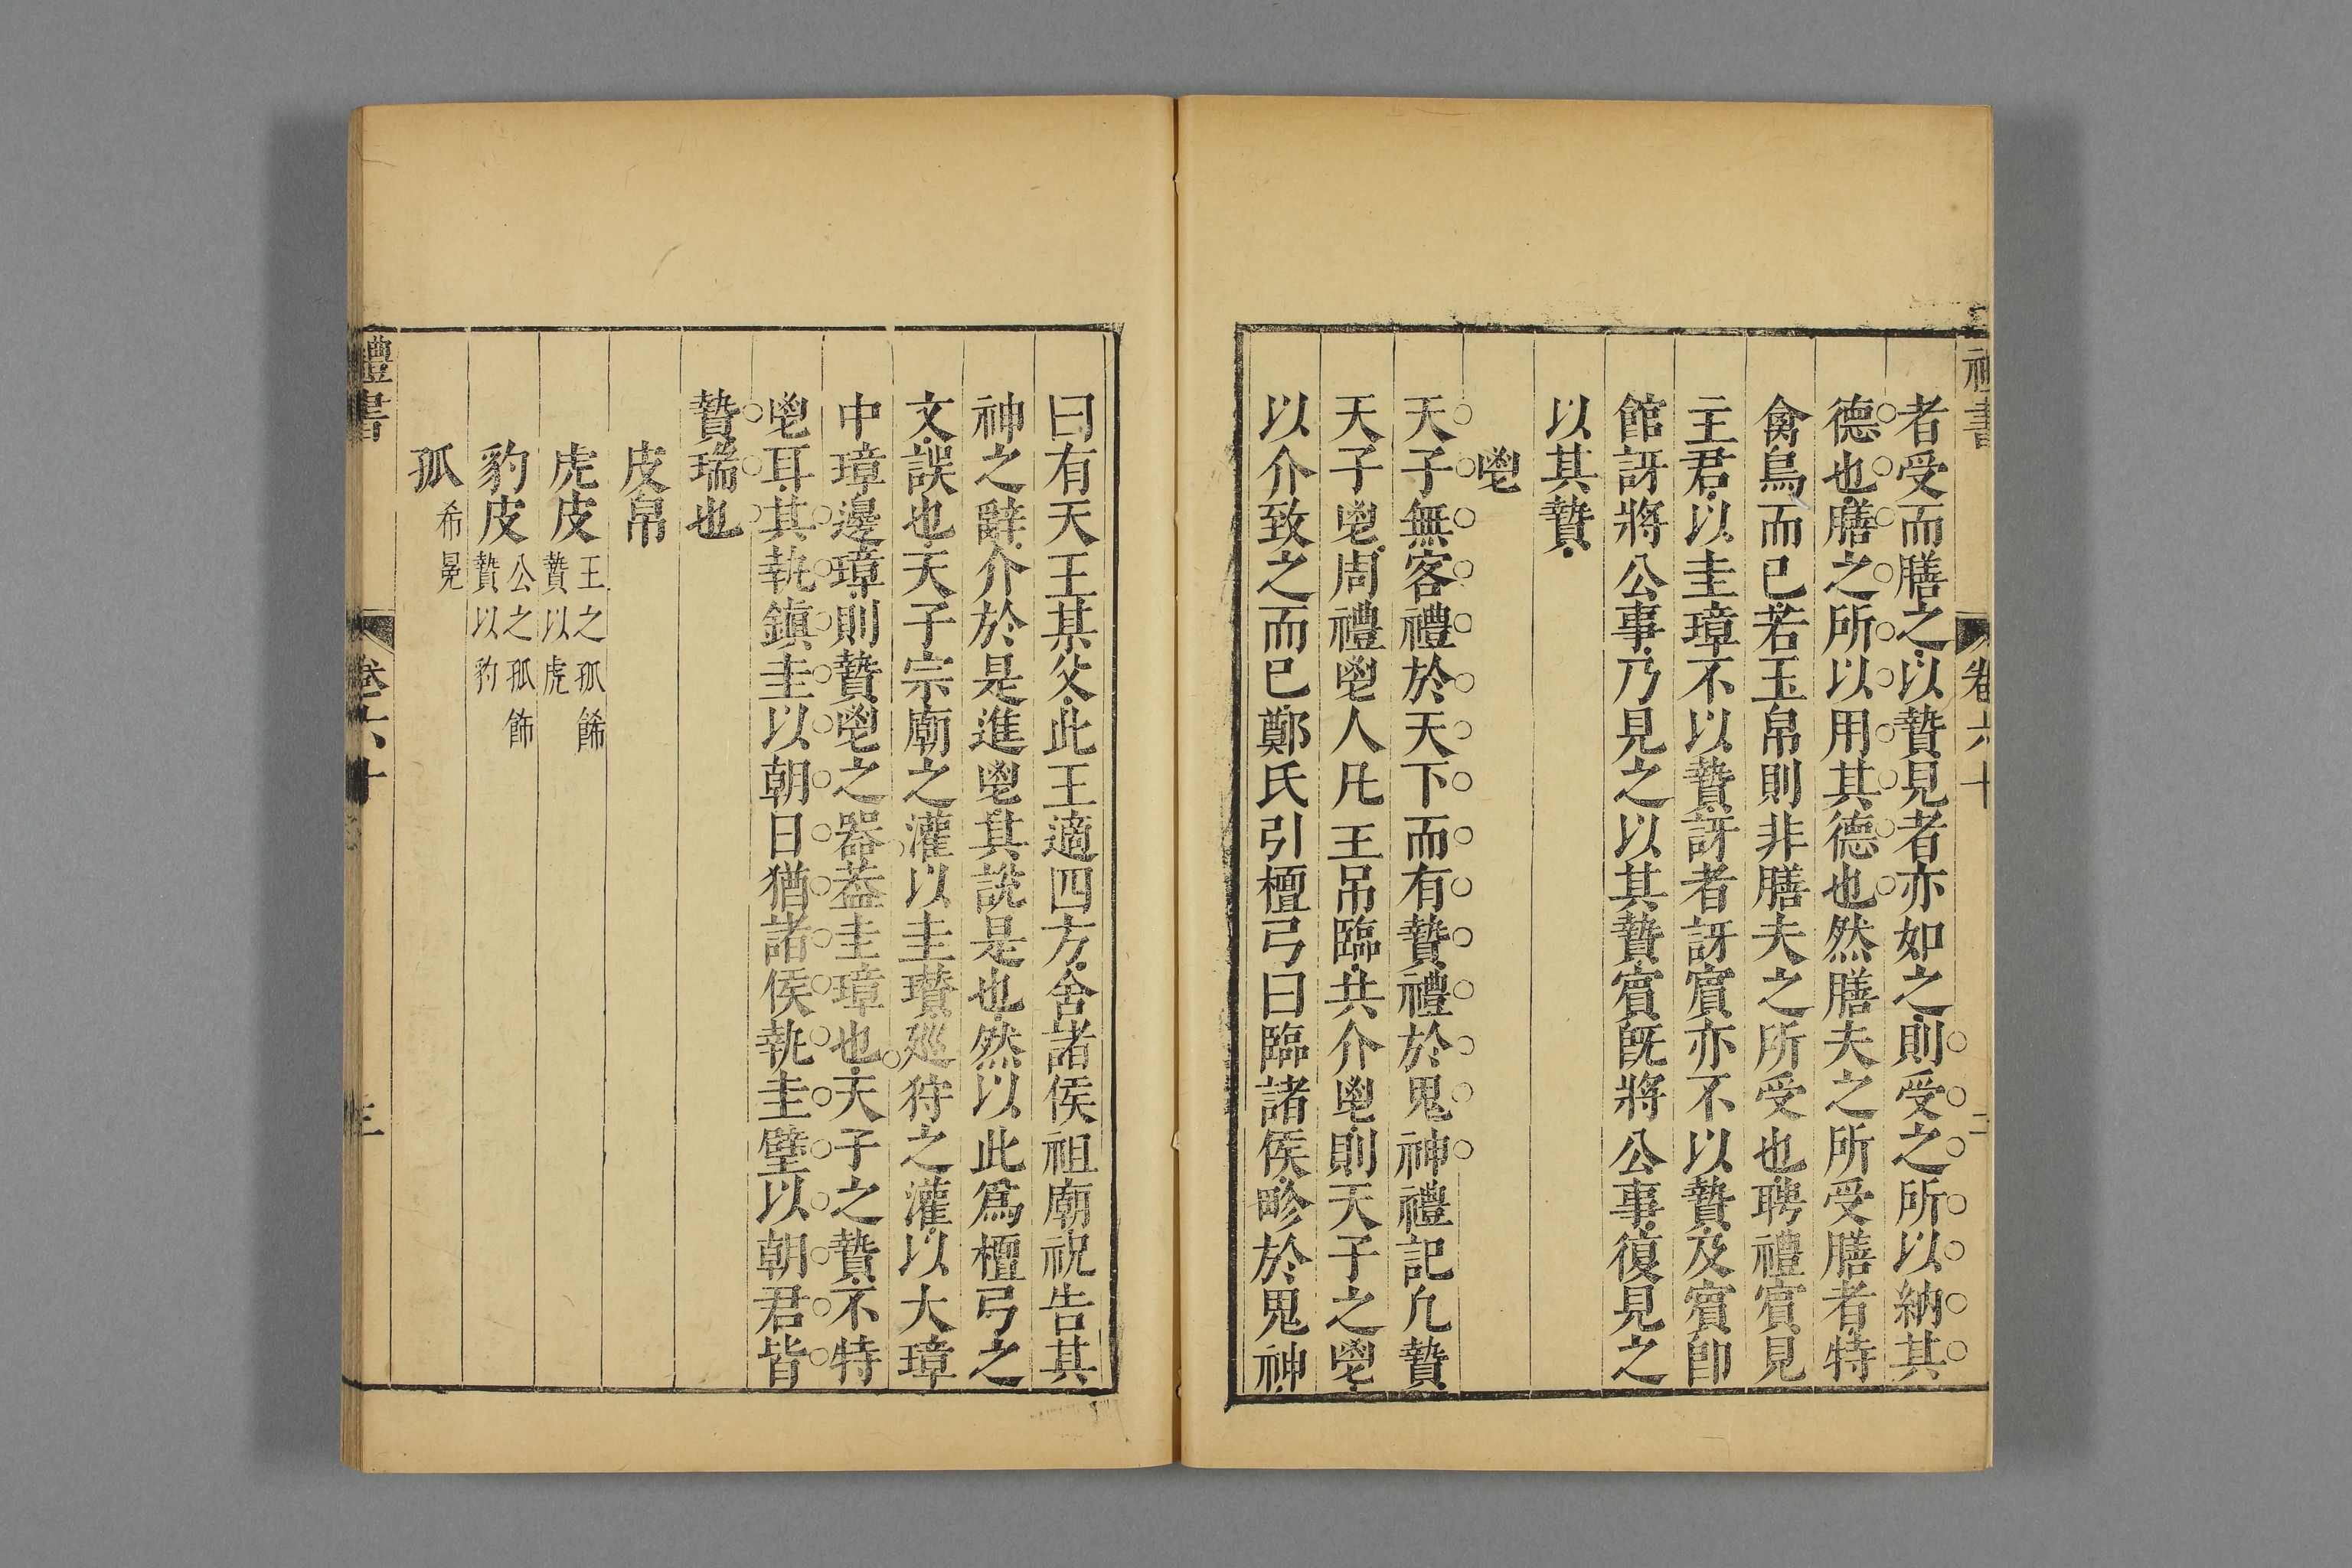 禮書 卷六十 二
者受而膳之以贄見者亦如之則受之所以納其
德也膳之所以用其德也然膳夫之所受膳者特
禽鳥而已若玉帛則非膳夫之所受也聘禮賔見
主君以圭璋不以贄訝者訝賔亦不以贄及賔卽
館訝將公事乃見之以其贄賔旣將公事復見之
以其贄
鬯
天子無客禮於天下而有贄禮於鬼神禮記凢贄
天子鬯周禮鬯人凡王吊臨共介鬯則天子之鬯
以介致之而已鄭氏引檀弓曰臨諸侯畛於鬼神
曰有天王某父此王適四方舍諸侯祖廟祝告其
神之辭介於是進鬯其說是也然以此爲檀弓之
文誤也天子宗廟之灌以圭瓚廵狩之灌以大璋
中璋邊璋則贄鬯之器葢圭璋也天子之贄不特
鬯耳其執鎭圭以朝日猶諸侯執圭璧以朝君皆
贄瑞也
皮帛
虎皮 王之孤餙贄以虎
豹皮 公之孤飾贄以豹
孤 希冕
禮書 卷六十 三